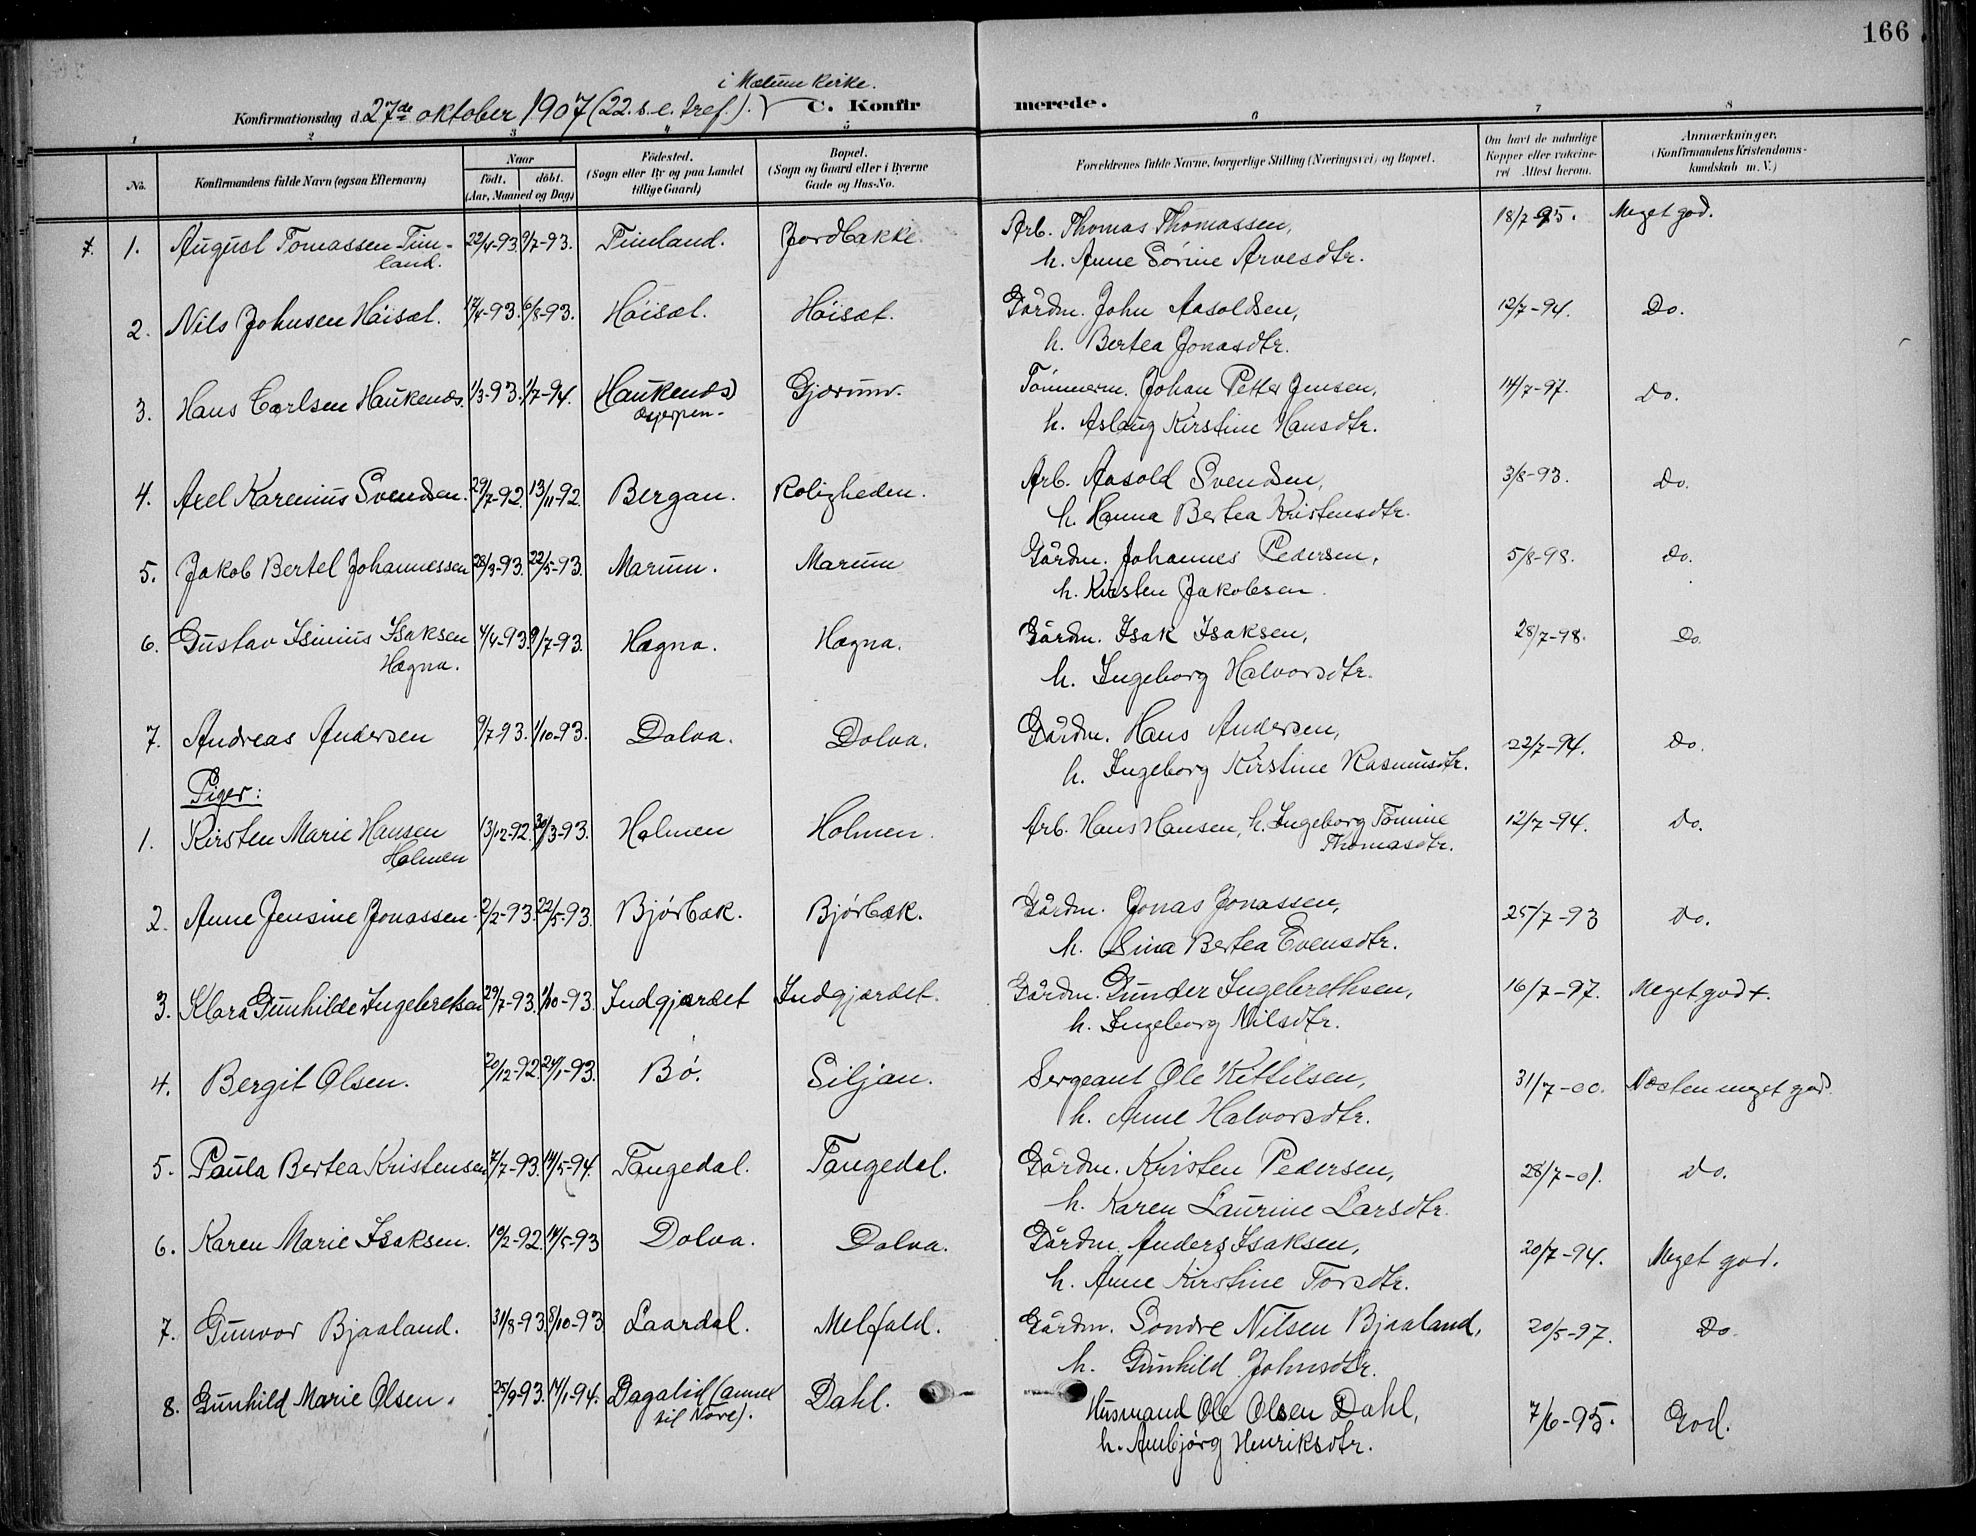 166
i Mælum Kirke.
Konfirmationsdag d. 27de oktober 1907 (22. s. e. tref.). C. Konfirmerede.
1 2 3 4 5 6 7 8
No. Konfirmandens fulde Navn (ogsaa Efternavn) Naar født. døbt. (Aar, Maaned og Dag) Fødested. (Sogn eller By og paa Landet tillige Gaard) Bopæl. (Sogn og Gaard eller i Byerne Gade og Hus-No. Forældrenes fulde Navne, borgerlige Stilling (Næringsvei) og Bopæl. Om havt de naturlige Kopper eller vakcineret Attest herom. Anmærkninger. (Konfirmandens Kristendomskundskab m. V.)
1. August Tomassen Timland. 22/4-93. 9/7-93. Timland. Jordbakke. Arb. Thomas Thomassen, 18/7-95. Meget god.
h. Anne Sørine Arvesdtr.
2. Nils Johnsen Høisæt. 17/4-93. 6/8-93. Høisæt. Høisæt. Gårdm. John Aasoldsen, 12/7-94. Do.
h. Bertea Jonasdtr.
3. Hans Carlsen Haukenæs. 1/3-93. 1/7-94. Haukenæs Gjerpen- Gjærum. Tømmerm. Johan Petter Jensen, 14/7-97. Do.
h. Aslaug Kirstine Hansdtr.
4. Axel Karenius Svendsen. 29/7-92. 13/11-92. Bergan. Roligheden. Arb. Aasold Svendsen, 3/8-93. Do.
h. Hanna Bertea Kristensdtr.
5. Jakob Bertel Johannessen 28/3-93. 22/5-93. Marum. Marum Gårdm. Johannes Pedersen, 5/8-98. Do.
h. Kirsten Jakobsen.
6. Gustav Isinius Isaksen Hægna. 4/4-93. 9/7-93. Hægna. Hægna. Gårdm. Isak Isaksen, 28/7-98. Do.
h. Ingeborg Halvorsdtr.
7. Andreas Andersen 9/7-93. 1/10-93. Dolva. Dolva. Gårdm. Hans Andersen, 22/7-94. Do.
h. Ingeborg Kirstine Rasmusdtr.
Piger:
1. Kirsten Marie Hansen Holmen 13/12-92. 30/3-93. Holmen Holmen. Arb. Hans Hansen, h. Ingeborg Tomine 12/7-94. Do.
Thomasdtr.
2. Anne Jensine Jonassen. 2/2-93. 22/5-93. Bjørbæk. Bjørbæk. Gårdm. Jonas Jonassen, 25/7-93 Do.
h. Sina Bertea Evensdtr.
3. Klara Gunhilde Ingebretsen 29/7-93. 1/10-93. Indgjærdet Indgjærdet. Gårdm. Gunder Ingebrethsen, 16/7-97. Meget god +.
h. Ingeborg Nilsdtr.
4. Bergit Olsen. 20/12-92. 24/1-93. Bø. Siljan. Sergeant Ole Kittilsen, 31/7-00. Næsten meget god.
h. Anne Halvorsdtr.
5. Paula Bertea Kristensen 7/7-93. 14/5-94. Tangedal. Tangedal. Gårdm. Kristen Pedersen, 28/7-01. Do.
h. Karen Laurine Larsdtr.
6. Karen Marie Isaksen. 10/2-92. 14/5-93 Dolva. Dolva. Gårdm. Anders Isaksen, 20/7-94. Meget god.
h. Anne Kirstine Torsdtr.
7. Gunvor Bjaaland. 31/8-93. 8/10-93 Laardal. Melfald. Gårdm. Sondre Nilsen Bjaaland, 20/5-97. Do.
h. Gunhild Johnsdtr.
8. Gunhild Marie Olsen. 25/9-93. 14/1-94. Dagalid (annex til Nore). Dahl. Husmand Ole Olsen Dahl, 7/6-95. God.
h. Ambjørg Henriksdtr.